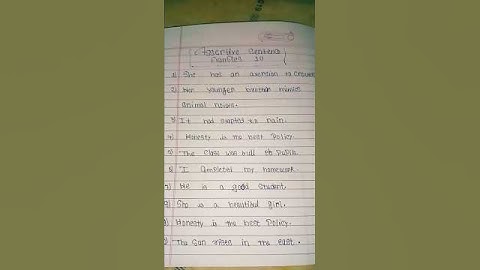 Assertive Sentence
Examples 10
1) She has an aversion to crowds
2) Her younger brother mimics
animal noises.
3) It had started to rain.
4) Honesty is the best Policy.
5) The class was full of Pupils.
6) I completed my homework.
7) He is a good student.
8) She is a beautiful girl.
9) Honesty is the best Policy.
The Sun rises in the east.